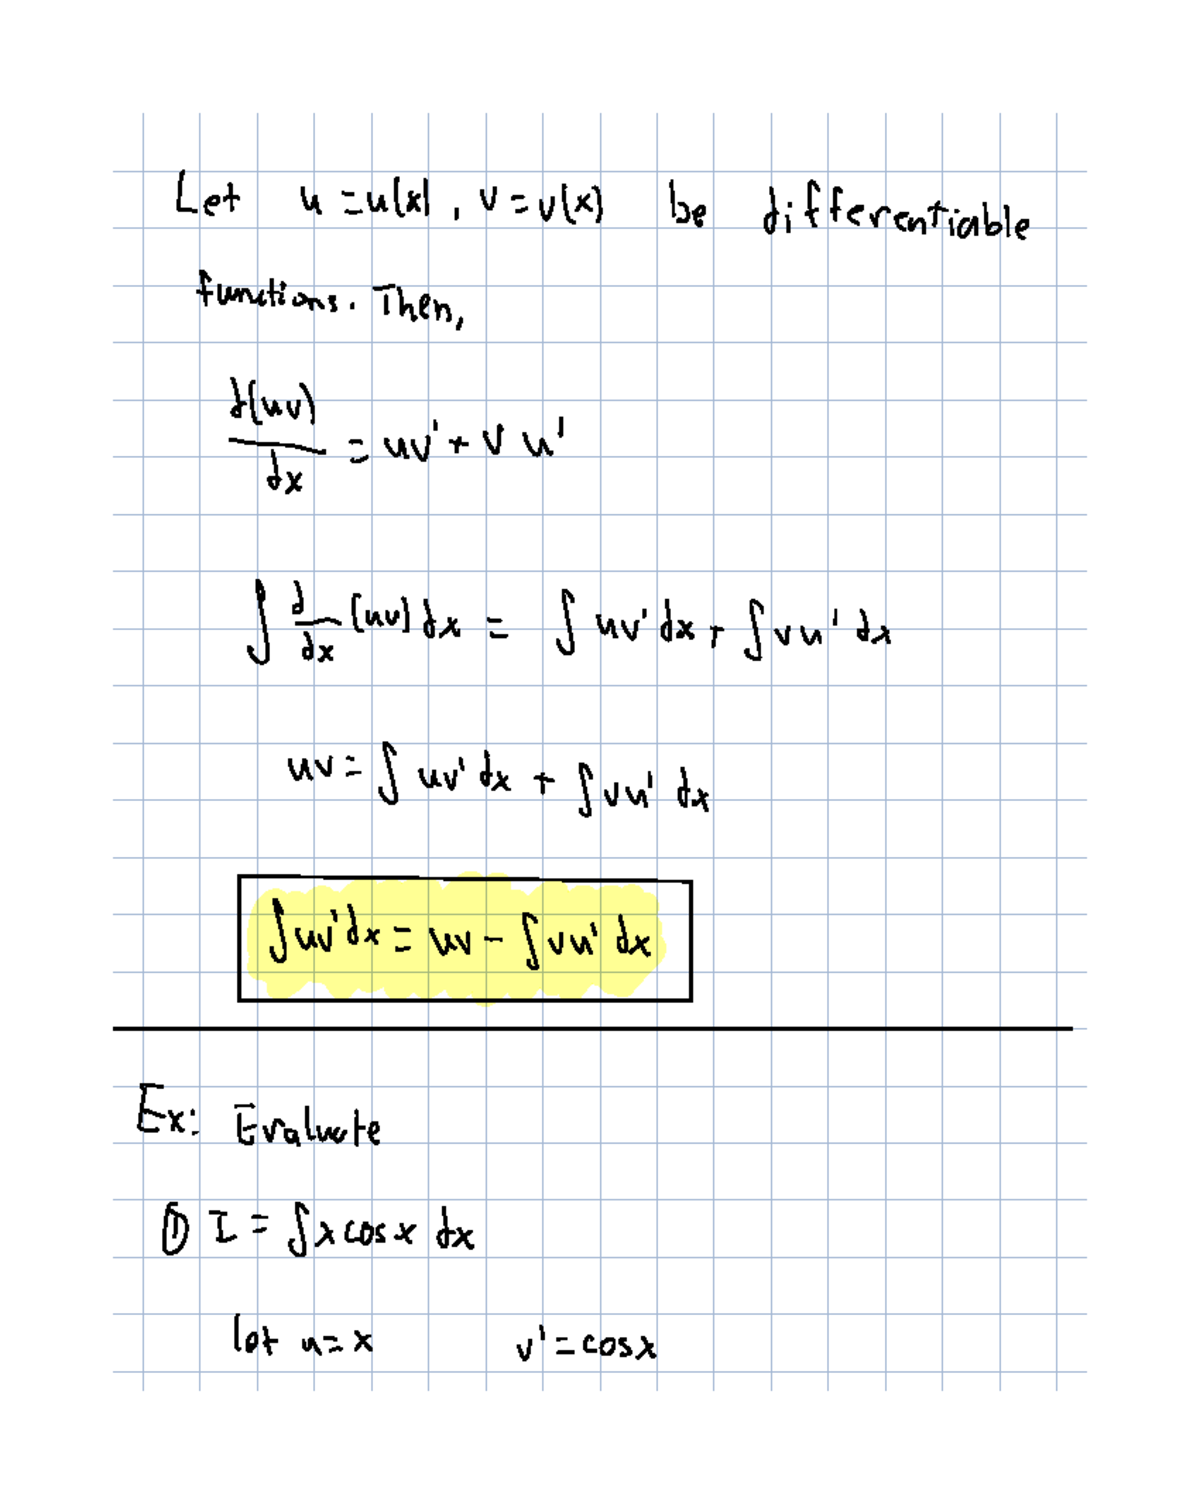 Let u = u(x), v = v(x) be differentiable
functions. Then,
d(uv)/dx = uv' + v u'
∫ d/dx (uv) dx = ∫ uv' dx + ∫ vu' dx
uv = ∫ uv' dx + ∫ vu' dx
∫ uv' dx = uv - ∫ vu' dx
Ex: Evaluate
① I = ∫ x cos x dx
let u = x v' = cos x